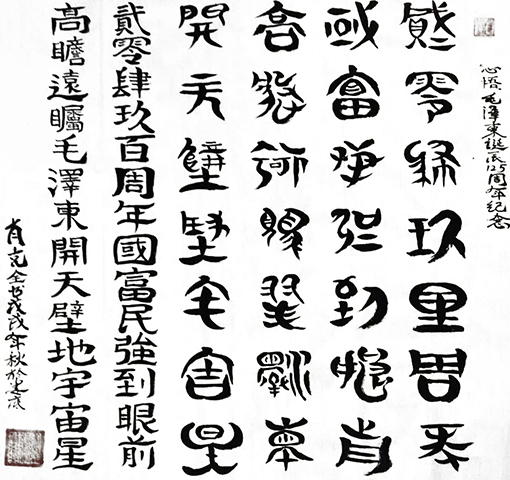 心悟毛澤東誕辰125周年纪念
貳零肆玖百周年
國富民強到眼前
高瞻遠矚毛澤東
開天壁地宇宙星
貳零肆玖百周年國富民強到眼前
高瞻遠矚毛澤東開天壁地宇宙星
肖克全书戊戌年秋於